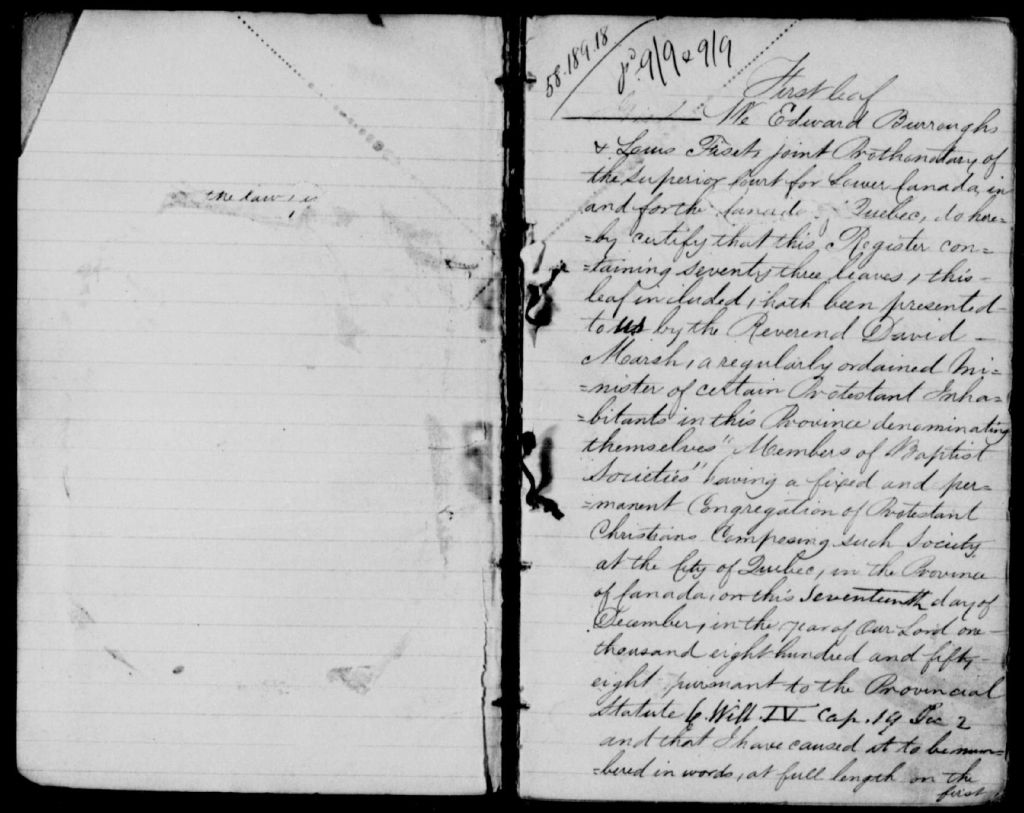 the law, is
58.189.18
9/9 & 9/9
First leaf
We Edward Burroughs
& Louis Fiset, joint Prothonotary of
the Superior Court for Lower Canada, in
and for the Quebec, do here=
=by certify that this Register con=
=taining seventy three leaves, this
leaf included, hath been presented
to us by the Reverend David
Marsh, a regularly ordained Mi=
=nister of certain Protestant Inha=
=bitants in this Province denominating
themselves "Members of Baptist
Societies" having a fixed and per=
=manent Congregation of Protestant
Christians Composing such Society
at the City of Quebec, in the Province
of Canada, on this seventeenth day of
December, in the year of Our Lord one
thousand eight hundred and fifty
eight pursuant to the Provincial
Statute 6. Will. IV Cap. 19 Sec 2
and that I have caused it to be num=
=bered in words, at full length on the
first